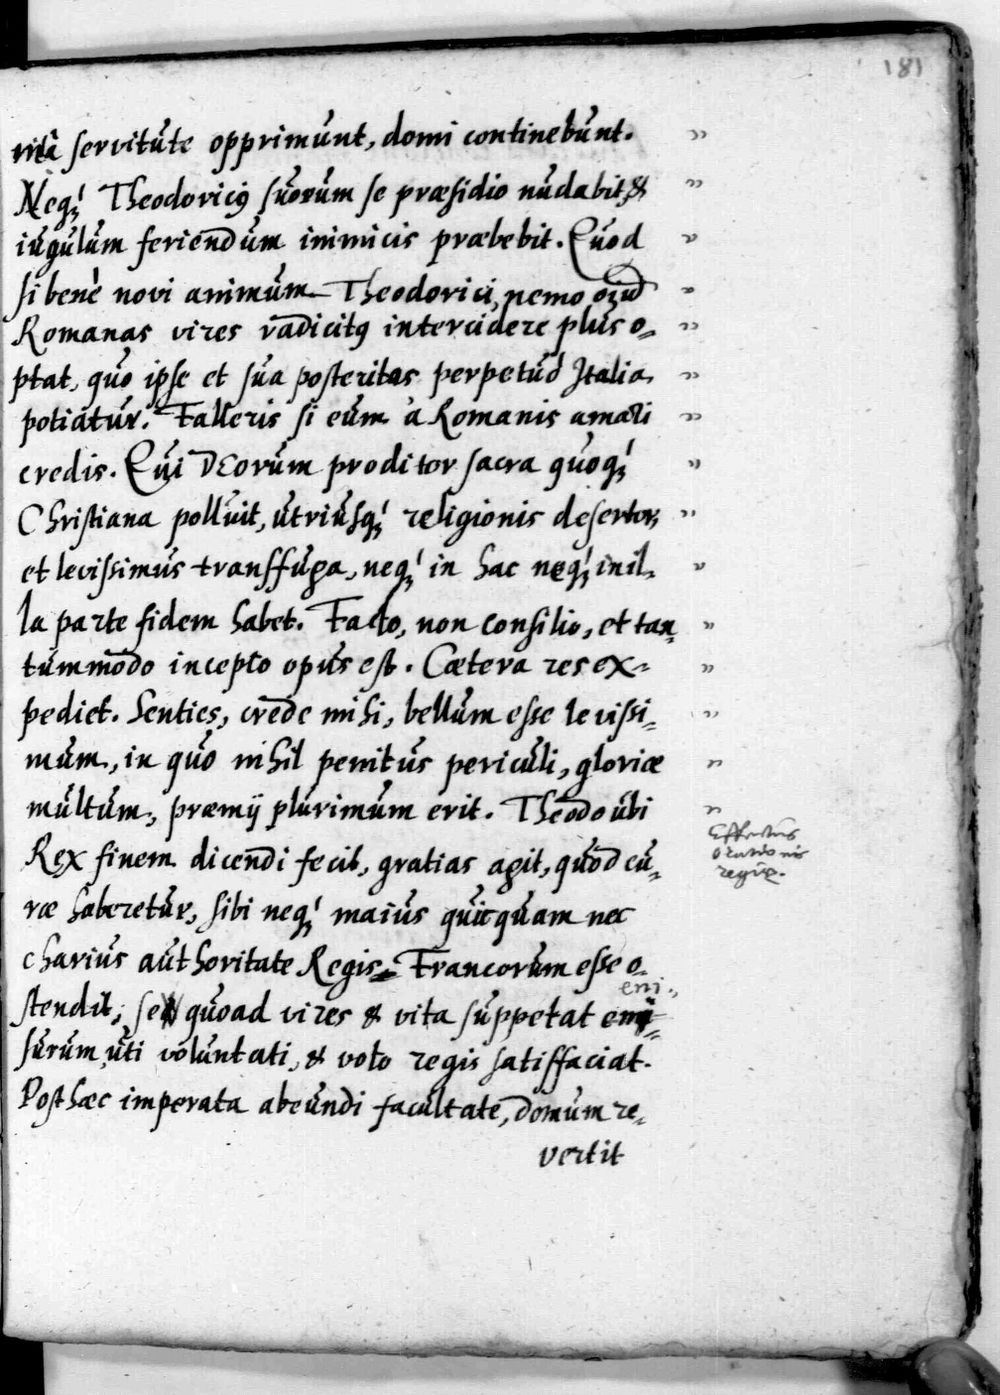 181
mitâ servitute opprimunt, domi continebunt. "
Neq; Theodoricus suorum se præsidio nudabit, & "
iugulum feriendum inimicis præbebit. Quod "
si benè novi animum Theodorici, nemo "
Romanas vires radicitus intercidere plus o- "
ptat, quo ipse et sua posteritas perpetuò Italia "
potiatur. Falleris si eum à Romanis amari "
credis. Qui DEorum proditor sacra quoq; "
Christiana polluit, utriusq; religionis desertor, "
et levissimus transffuga, neq; in hac neq; in il- "
la parte fidem habet. Facto, non consilio, et tan- "
tummodo incepto opus est. Cætera res ex- "
pediet. Senties, crede mihi, bellum esse levissi- "
mum, in quo nihil penitus periculi, gloriæ "
multum, præmij plurimum erit. Theodo ubi "
Effectus
orationis
regiæ.
Rex finem dicendi fecit, gratias agit, quòd cu-
ræ haberetur, sibi neq; maius quicquam nec
charius authoritate Regis Francorum esse o-
stendit; se quoad vires & vita suppetat eni-
surum, uti voluntati, & voto regis satisffaciat.
Post hæc imperata abeundi facultate, domum re-
vertit